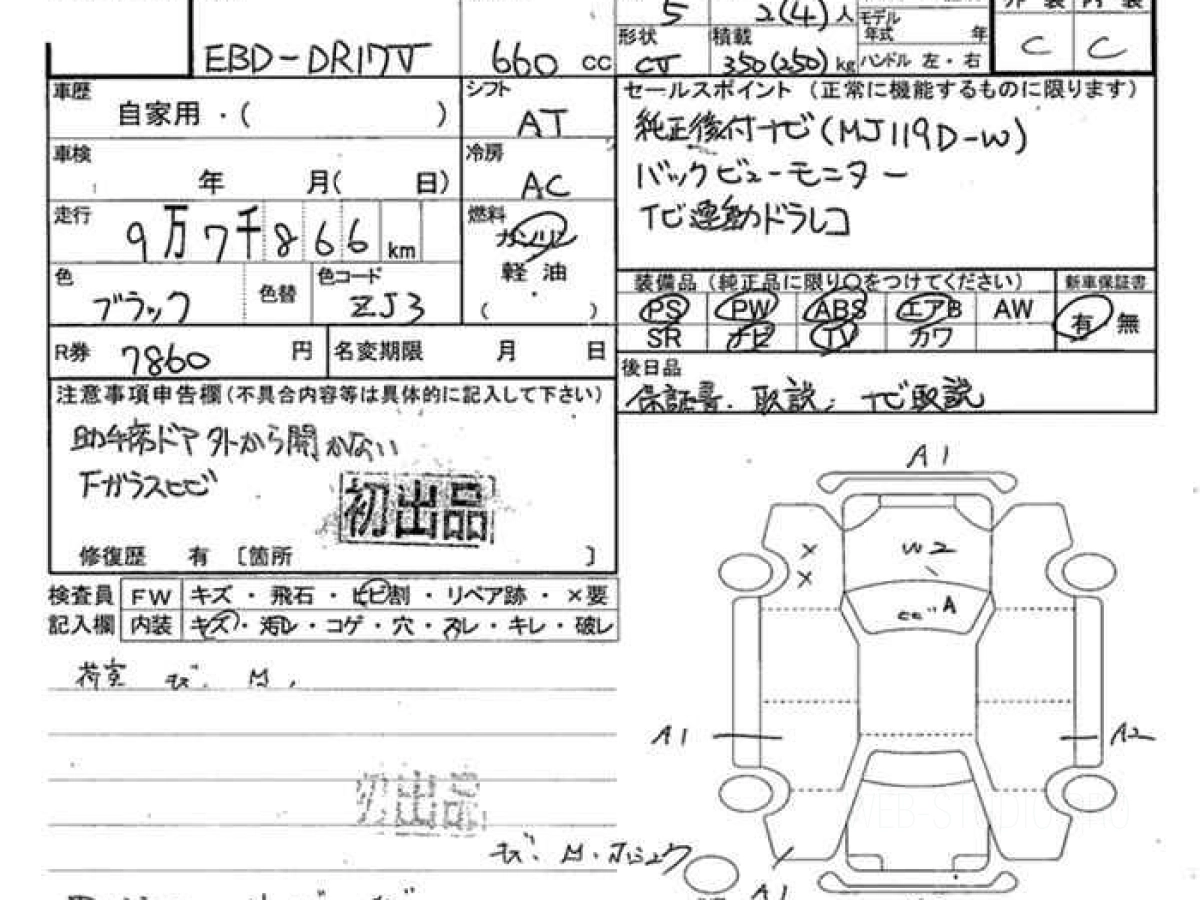 5
2(4)人
モデル
年式 年
C
C
EBD-DR17V
660 cc
形状
積載
350(250)kg
ハンドル 左・右
車歴
自家用・( )
シフト
AT
セールスポイント (正常に機能するものに限ります)
純正後付ナビ(MJ119D-W)
バックビューモニター
ナビ連動ドラレコ
車検
年 月( 日)
冷房
AC
走行
9万7千866km
燃料
ガソリン
軽油
( )
色
ブラック
色替
色コード
ZJ3
装備品 (純正品に限り○をつけてください)
新車保証書
PS PW ABS エアB AW
有 無
SR ナビ TV カワ
R券 7860 円
名変期限 月 日
後日品
保証書、取説、ナビ取説
注意事項申告欄(不具合内容等は具体的に記入して下さい)
助手席ドア外から開かない
Fガラスヒビ
初出品
修復歴 有 〔箇所 〕
検査員 FW キズ・飛石・ヒビ割・リペア跡・×要
記入欄 内装 キズ・汚レ・コゲ・穴・スレ・キレ・破レ
荷室 キズ. M.
初出品
A1
×
×
W2
A
A1
A2
A1
WEB-STUDIO.PRO